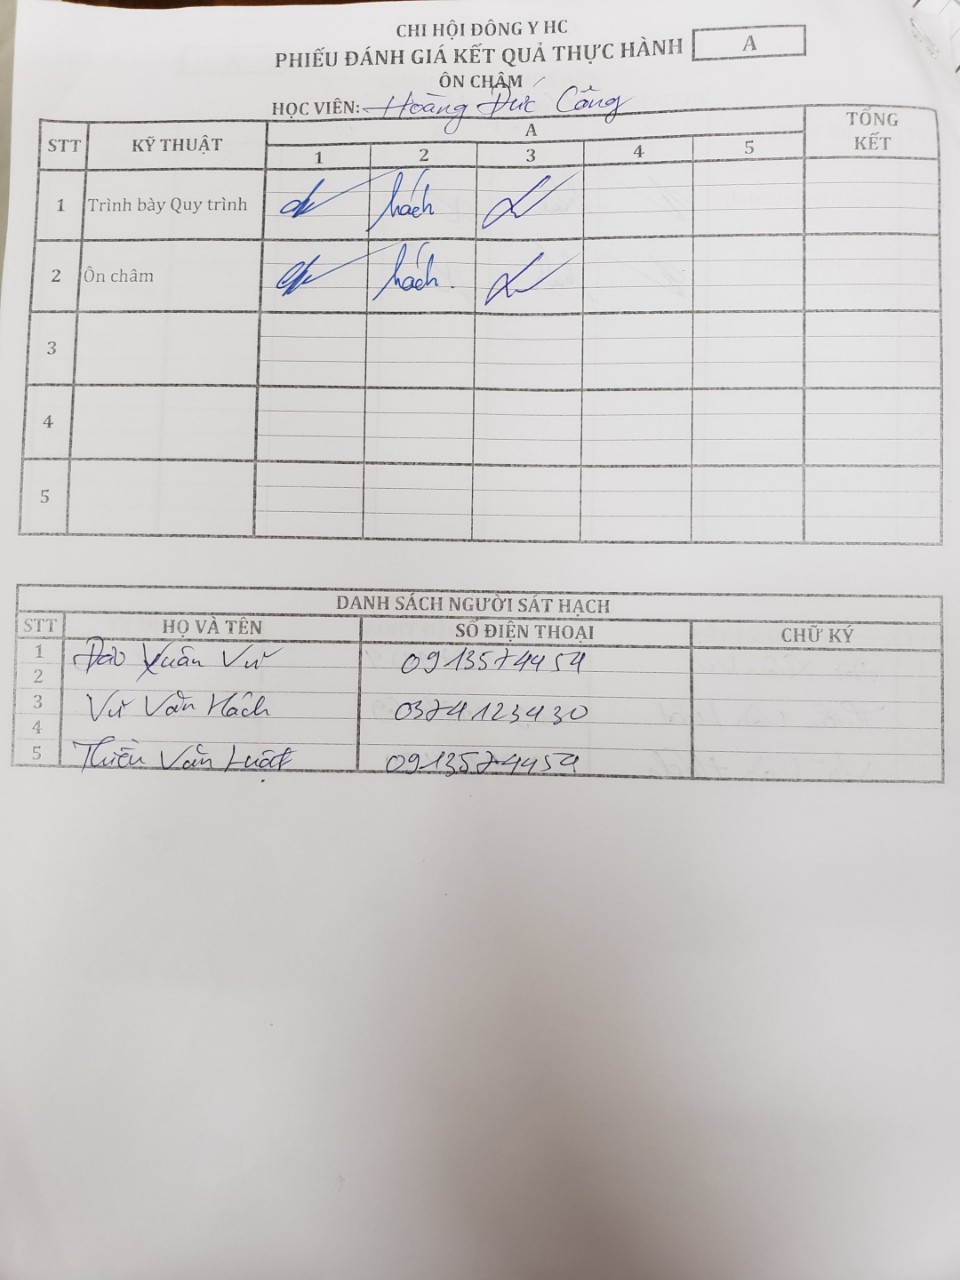 CHI HỘI ĐÔNG Y HC
PHIẾU ĐÁNH GIÁ KẾT QUẢ THỰC HÀNH A
ÔN CHÂM
HỌC VIÊN: Hoàng Đức
STT KỸ THUẬT A TỔNG KẾT
1 2 3 4 5
1 Trình bày Quy trình hách
2 Ôn châm hách
3
4
5
DANH SÁCH NGƯỜI SÁT HẠCH
STT HỌ VÀ TÊN SỐ ĐIỆN THOẠI CHỮ KÝ
1 Đào Xuân Vư 0913574459
2
3 Vư Văn Hách 0374123430
4
5 Thiều Văn Luật 0913574459